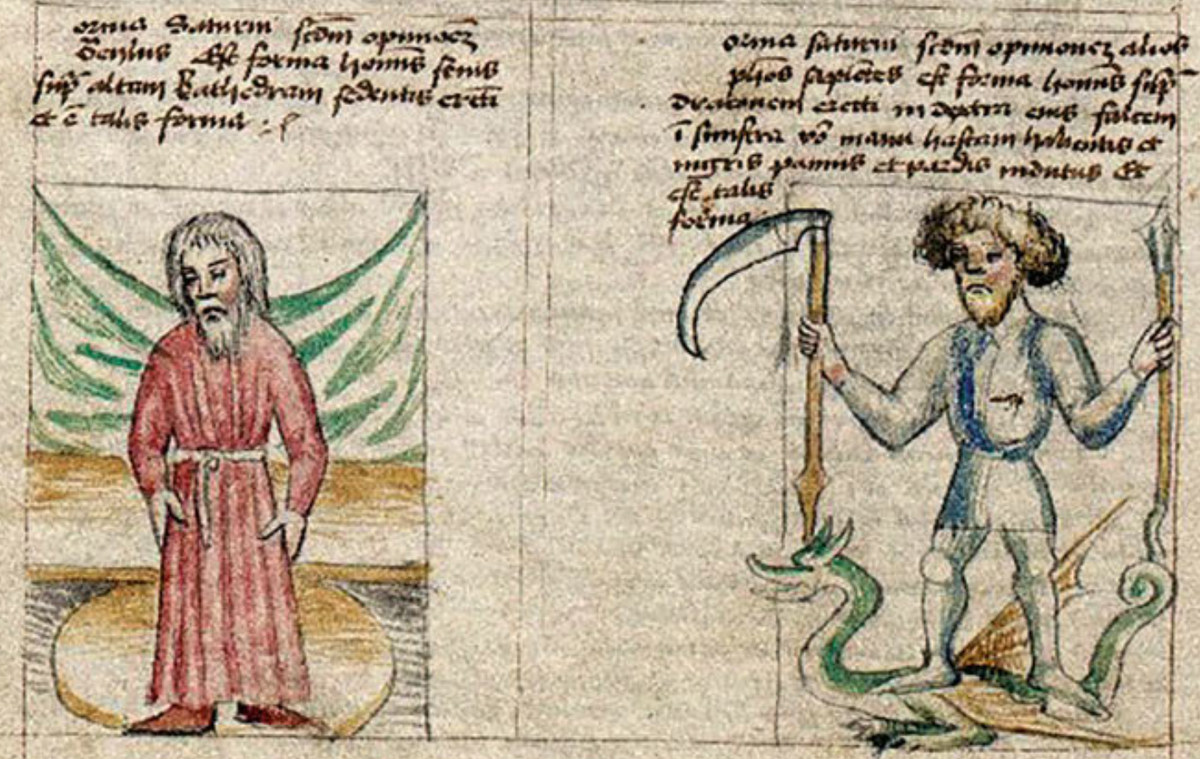 orma Saturni scdm opinioez
Est forma hominis senis
sup altam kathedram sedentis erecti
et ē talis forma
orma saturni scdm opinionez alios
plios sapiētes est forma hominis sup
draconem erecti in dextra eius falcem
ī sinistra vo manu hastam habentis et
nigris pannis et pardis indutus Et
est talis
forma